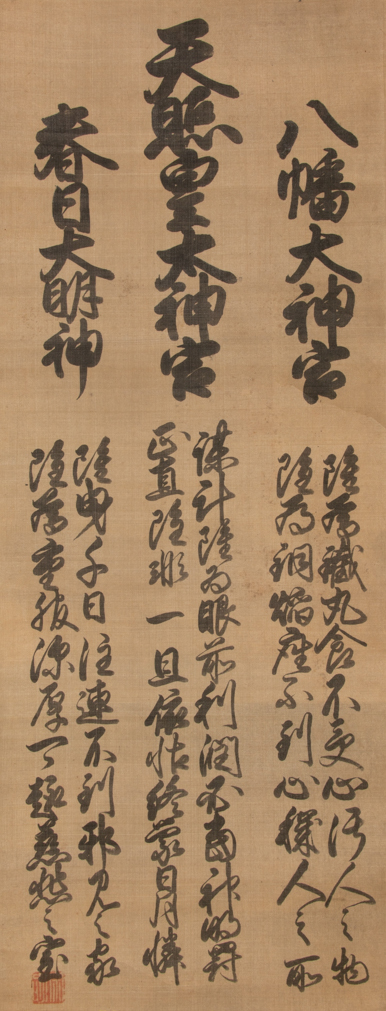 八幡大神宮
雖為鐵丸食不受心汚人之物
雖為銅焔座不到心穢人之所
天照皇太神宮
謀計雖為眼前利潤必當神明罰
正直雖非一旦依怙終蒙日月憐
春日大明神
雖曳千日注連不到邪見之家
雖為重服深厚可趣慈悲之室